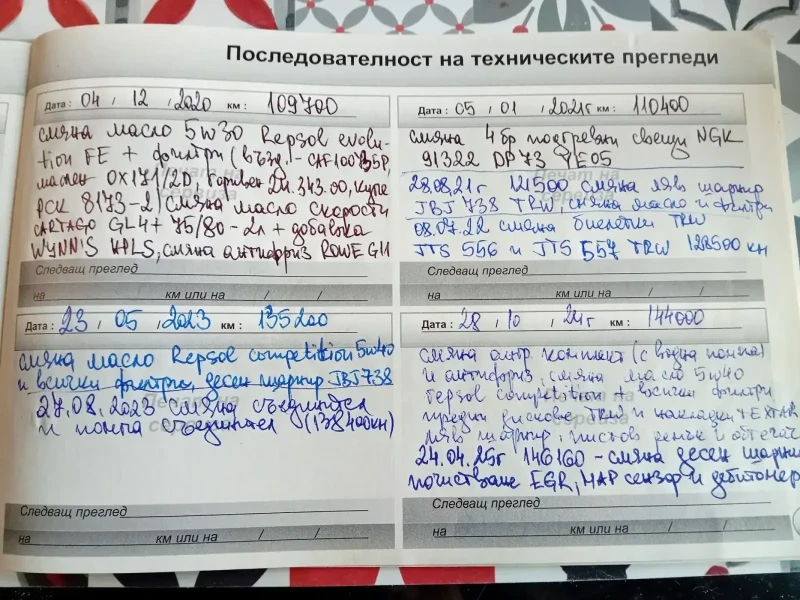 Последователност на техническите прегледи
Дата: 04 / 12 / 2020 км: 109700
смяна масло 5W30 Repsol evolu-
tion FE + филтри (възд. - CAF100
маслен OX171/2D горивен 24.343.00, купе
PCK 8173-2) смяна масло скорости
CARTAGO GL4+ 75/80 - 2л + добавка
WYNN'S HPLS, смяна антифриз ROWE G11
Следващ преглед
на км или на / /
Дата: 05 / 01 / 2021г км: 110400
смяна 4 бр подгревни свещи NGK
91322 DP73 YE05
28.08.21г 121500 смяна ляв шарнир
JBJ 738 TRW, смяна масло и филтри
08.07.22 смяна биелетки TRW
JTS 556 и JTS 557 TRW 128500 км
Следващ преглед
на км или на / /
Дата: 23 / 05 / 2023 км: 135200
смяна масло Repsol competition 5w40
и всички филтри, десен шарнир JBJ738
27.08.2023 смяна съединител
и помпа съединител (138400км)
Следващ преглед
на км или на / /
Дата: 28 / 10 / 24г км: 144000
смяна анг. комплект (с водна помпа)
и антифриз, смяна масло 5w40
repsol competition + всички филтри
предни дискове TRW и накладки TEXTAR
ляв шарнир, пистов ремък и обтегач
24.04.25г 146160 - смяна десен шарнир
почистване EGR, MAP сензор и дебитомер
Следващ преглед
на км или на / /